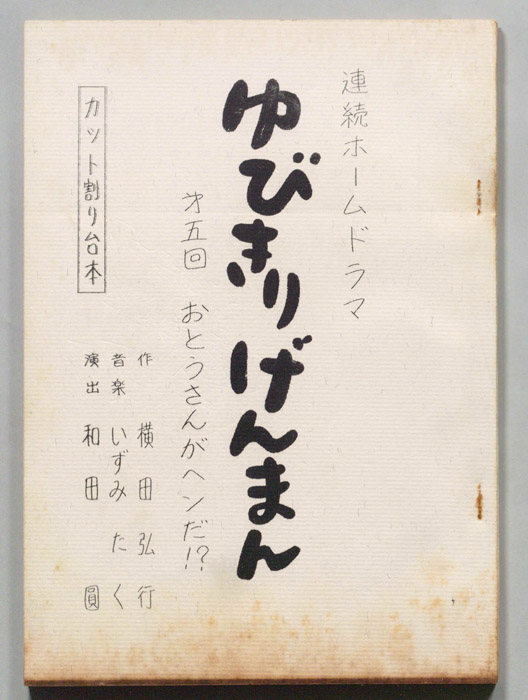 連続ホームドラマ
ゆびきりげんまん
第五回 おとうさんがヘンだ!?
作 横田弘行
音楽 いずみたく
演出 和田圓
カット割り台本